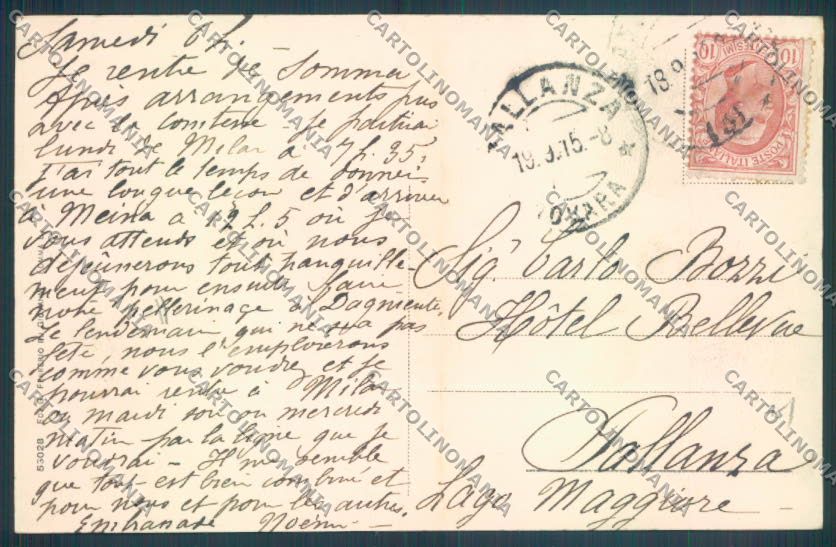 Samedi 6h.
Je rentre de Somma
Après arrangements pris
avec la comtesse je partirai
lundi de Milan à 7h.35,
j'ai tout le temps de donner
une longue leçon et d'arriver
à Meina à 12h.5 où je
vous attends et où nous
déjeûnerons tout tranquille-
ment pour ensuite faire
notre pellerinage à Dagnente.
Le lendemain qui ne sera pas
fête, nous l'emploierons
comme vous voudrez et je
pourrai rentrer à Milan
ou mardi soir ou mercredi
matin par la ligne que je
voudrai – Il me semble
que tout est bien combiné et
pour nous et pour les autres.
Embrassade Noémi –
Sig. Carlo Bozzi
Hôtel Bellevue
Pallanza
Lago Maggiore –
PALLANZA
19.9.15.-8
NOVARA
18.9
POSTE ITALIANE
10
CENTESIMI
10
53028
CARTOLINOMANIA